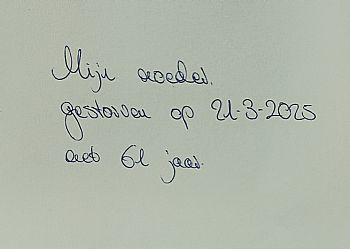 Mijn moeder.
gestorven op 21-3-2025
met 61 jaar.